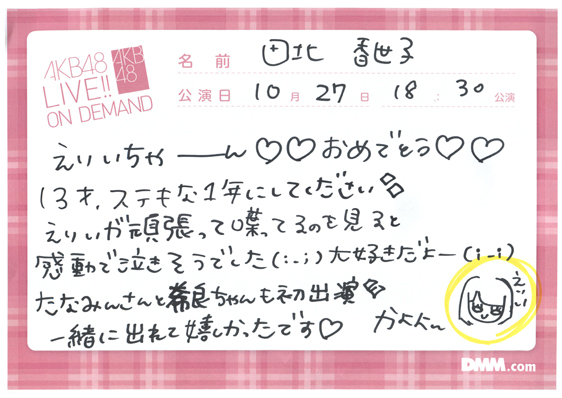 AKB48
LIVE!!
ON DEMAND
AKB
48
名前 田北 香世子
公演日 10月27日 18:30公演
えりいちゃーーん♡♡おめでとう♡♡
13才、ステキな1年にしてください
えりいが頑張って喋ってるのを見ると
感動で泣きそうでした(:_;)大好きだよー(i_i)
たなみんさんと希良ちゃんも初出演
一緒に出れて嬉しかったです♡ かよよん
えりい
DMM.com